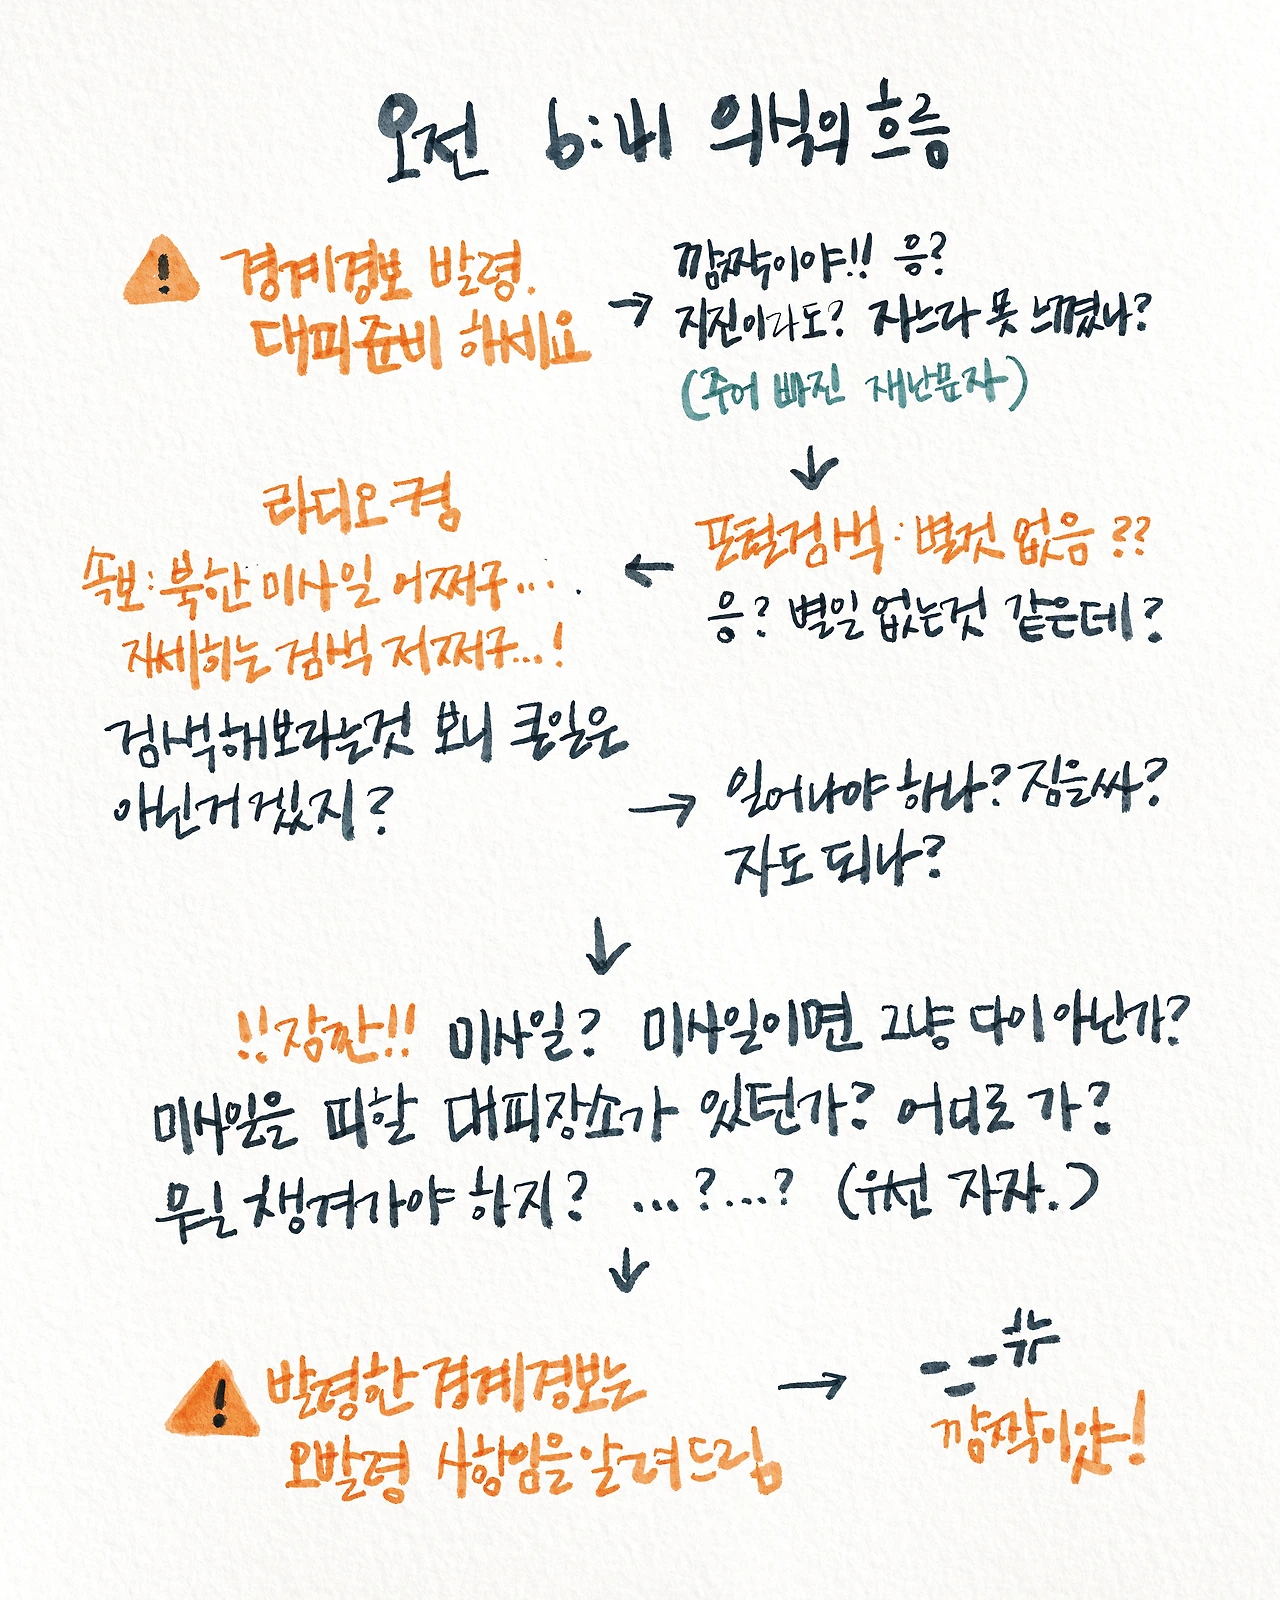 오전 6:41 의식의 흐름
경계경보 발령.
대피준비 하세요
→ 깜짝이야!! 응?
지진이라도? 자느라 못 느꼈나?
(주어 빠진 재난문자)
↓
포털검색: 별것 없음 ??
응? 별일 없는것 같은데?
←
라디오 켬
속보: 북한 미사일 어쩌구...
자세히는 검색 저쩌구...!
검색해보라는것 보니 큰일은
아닌거겠지?
→ 일어나야 하나? 짐을싸?
자도 되나?
↓
!!잠깐!! 미사일? 미사일이면 그냥 다이 아닌가?
미사일을 피할 대피장소가 있던가? 어디로 가?
뭐 챙겨가야 하지? ...?...? (우선 자자.)
↓
발령한 경계경보는
오발령 사항임을 알려드림
→
깜짝이얏!